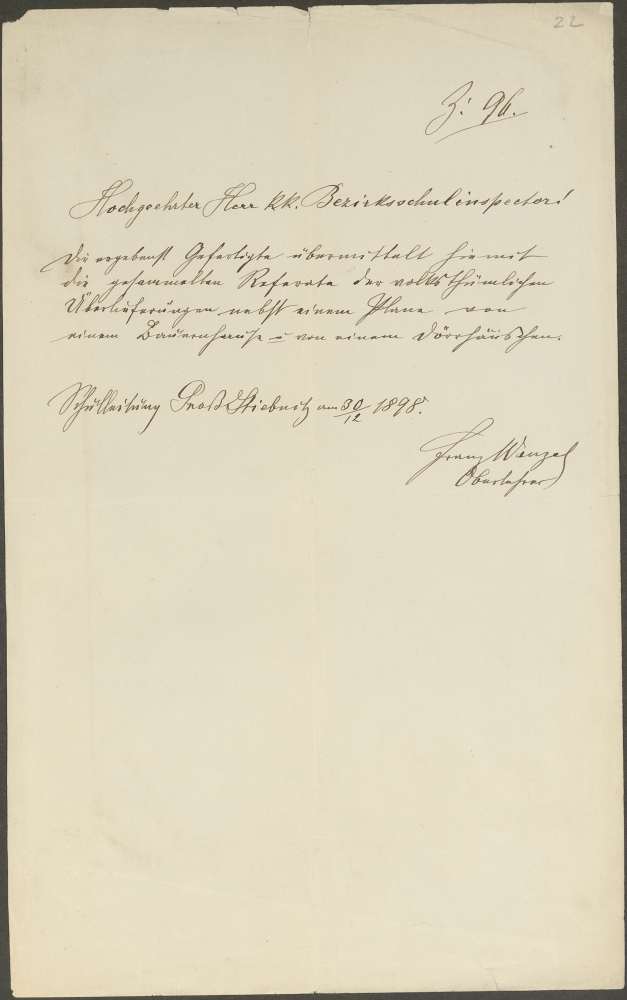 22
Z: 96.
Hochgeehrter Herr k.k. Bezirksschulinspector!
Die ergebenst Gefertigte übermittelt hiemit
die gesammelten Referate der volksthümlichen
Überlieferungen nebst einem Plane von
einem Bauernhause u von einem Dörrhäuschen.
Schulleitung Groß Stiebnitz am 30/12 1898.
Franz Wenzel
Oberlehrer